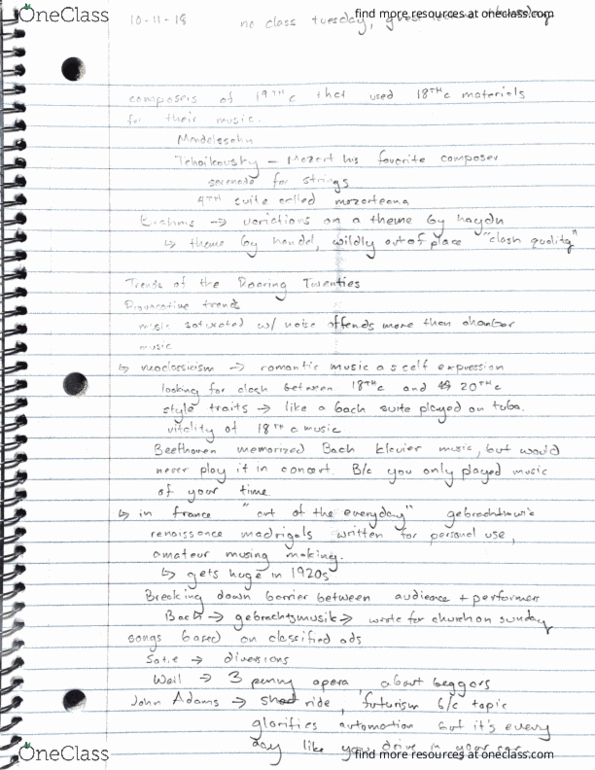 OneClass
find more resources at oneclass.com
10-11-18 no class tuesday,
composers of 19THc that used 18THc materials
for their music.
Mendelssohn
Tchaikovsky – Mozart his favorite composer
serenade for strings
4TH suite called mozarteana
Brahms → variations on a theme by haydn
↳ theme by handel, wildly out of place "clash quality"
Trends of the Roaring Twenties
trends
music saturated w/ noise offends more than chamber
music
↳ neoclassicism → romantic music as self expression
looking for clash between 18THc and 20THc
style traits → like a bach suite played on tuba.
vitality of 18THc music
Beethoven memorized Bach klavier music, but would
never play it in concert. B/c you only played music
of your time.
↳ in france "art of the everyday" gebrachtmusic
renaissance madrigals written for personal use,
amateur musing making.
↳ gets huge in 1920s
Breaking down barrier between audience + performers
Bach → gebrachtsmusik → wrote for church on sunday
songs based on classified ads
Satie → diversions
Weil → 3 penny opera, about beggars
John Adams → ride, futurism b/c topic
glorifies automation but it's every
day like you drive in your car
OneClass
find more resources at oneclass.com